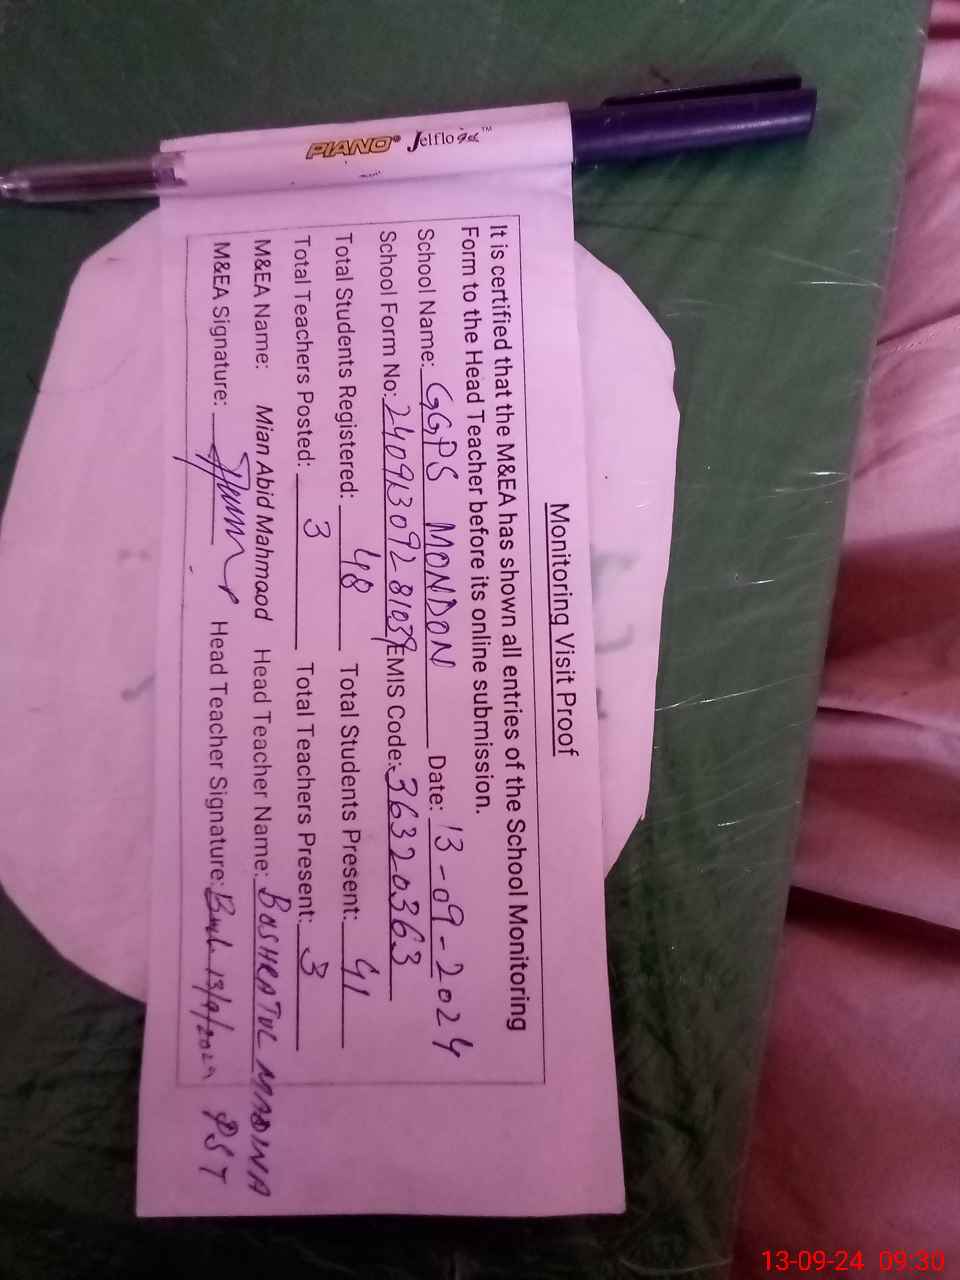 PIANO® Jelflo gel™
Monitoring Visit Proof
It is certified that the M&EA has shown all entries of the School Monitoring
Form to the Head Teacher before its online submission.
School Name: GGPS MONDON Date: 13-09-2024
School Form No: 24091309281039 EMIS Code: 36320363
Total Students Registered: 48 Total Students Present: 41
Total Teachers Posted: 3 Total Teachers Present: 3
M&EA Name: Mian Abid Mahmood Head Teacher Name: BUSHRATUL MADINA
M&EA Signature: Head Teacher Signature: 13/9/2024 PST
13-09-24 09:30